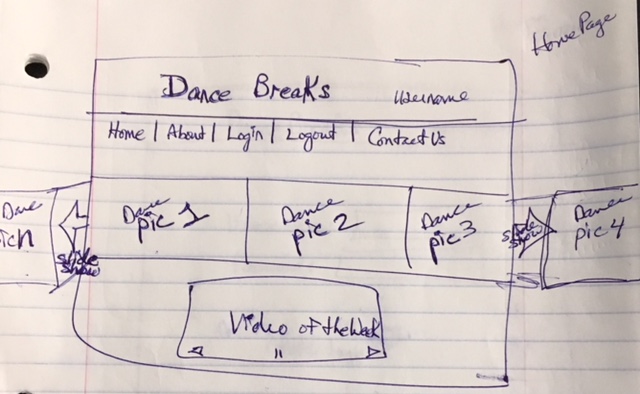 Home Page
Dance Breaks
Username
Home | About | Login | Logout | Contact Us
Dance
pic 1
Dance
pic 2
Dance
pic 3
Dance
pic 4
slide
show
slide
show
Video of the Week